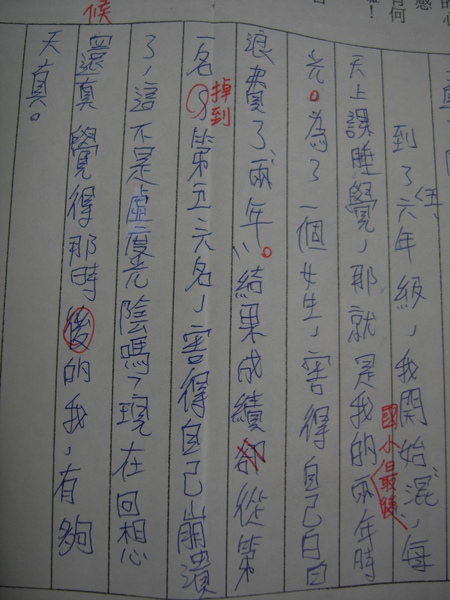 到了六年級，我開始「混」，每
天上課睡覺，那就是我的兩年時
國小最
光。為了一個女生，害得自己白白
浪費了兩年。結果成績卻從第
一名第五六名，害得自己崩潰
掉到
了，這不是虛度光陰嗎？現在回想
還真覺得那時後的我，有夠
候
天真。